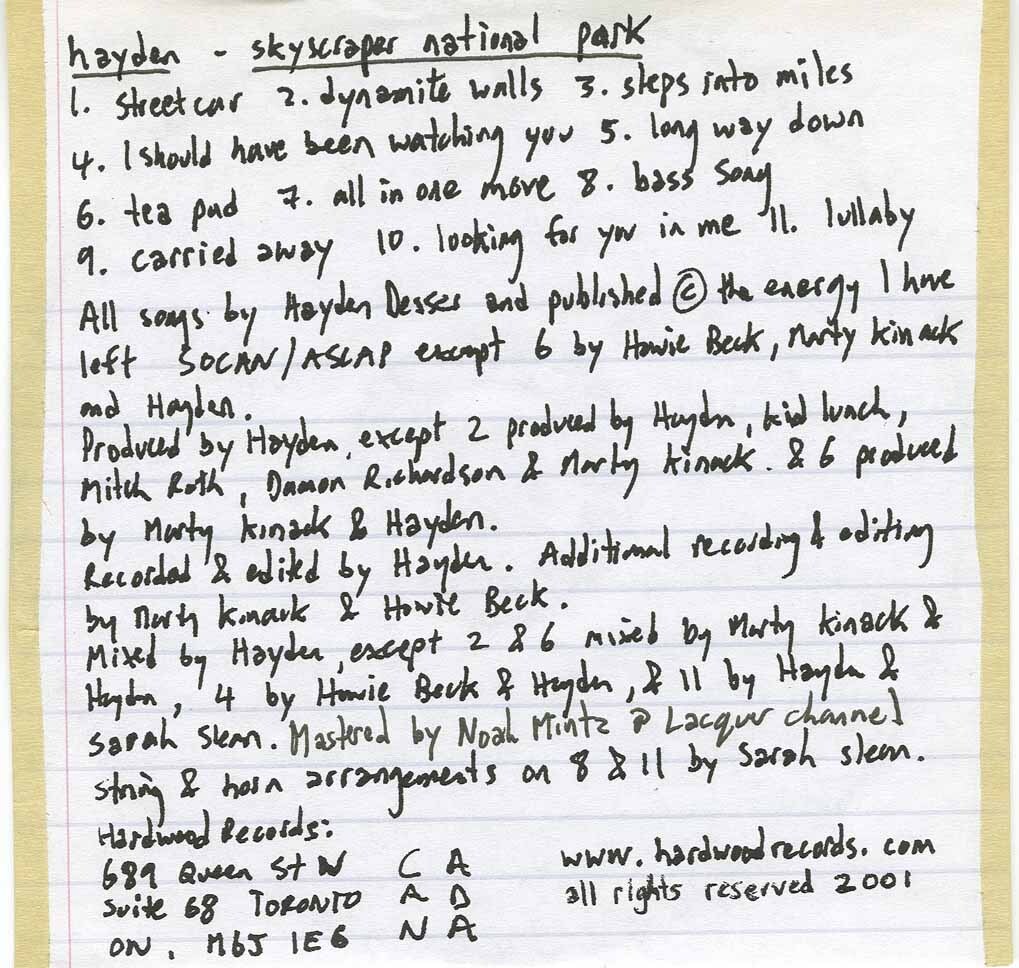 hayden - skyscraper national park
1. streetcar 2. dynamite walls 3. steps into miles
4. I should have been watching you 5. long way down
6. tea pad 7. all in one move 8. bass song
9. carried away 10. looking for you in me 11. lullaby
All songs by Hayden Desser and published © the energy I have
left SOCAN/ASCAP except 6 by Howie Beck, Marty Kinack
and Hayden.
Produced by Hayden, except 2 produced by Hayden, kid lunch,
Mitch Roth, Damon Richardson & Marty Kinack. & 6 produced
by Marty Kinack & Hayden.
Recorded & edited by Hayden. Additional recording & editing
by Marty Kinack & Howie Beck.
Mixed by Hayden, except 2 & 6 mixed by Marty Kinack &
Hayden, 4 by Howie Beck & Hayden, & 11 by Hayden &
Sarah Slean. Mastered by Noah Mintz @ Lacquer channel
string & horn arrangements on 8 & 11 by Sarah Slean.
Hardwood Records:
689 Queen St W CA
Suite 68 TORONTO AD
ON, M6J 1E6 NA
www.hardwoodrecords.com
all rights reserved 2001